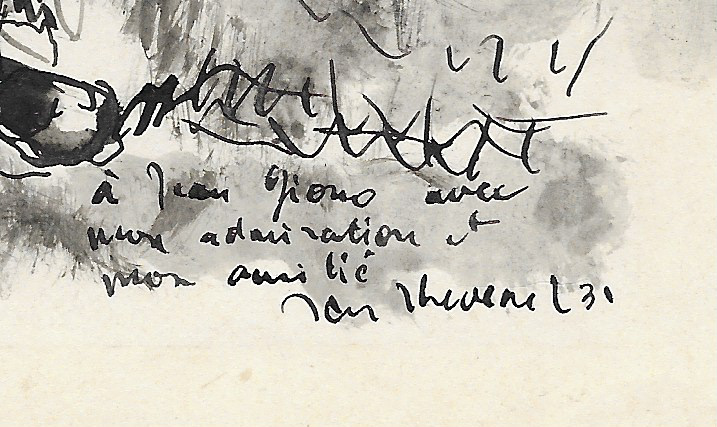 à Jean Giono avec
mon admiration et
mon amitié
Jean Thevenet 31